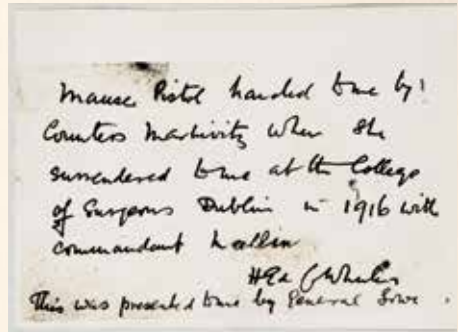 Mauser Pistol handed to me by
Countess Markivitz when she
surrendered to me at the College
of Surgeons Dublin in 1916 with
commandant Mallin
H de C Wheeler
This was presented to me by General Lowe.